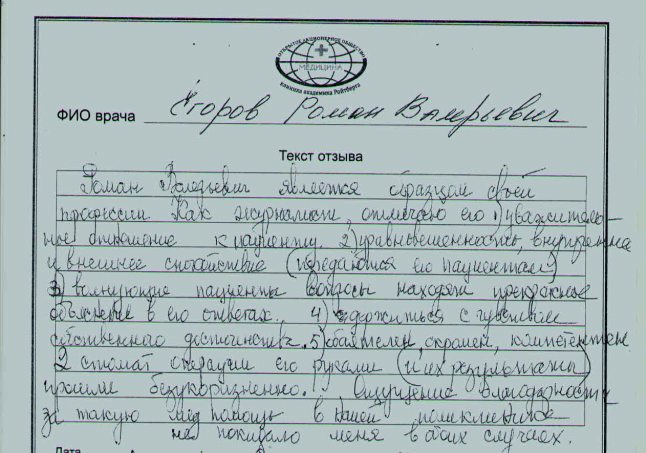 ОТКРЫТОЕ АКЦИОНЕРНОЕ ОБЩЕСТВО
МЕДИЦИНА
Клиника академика Ройтберга
ФИО врача Егоров Роман Валерьевич
Текст отзыва
Роман Валерьевич является образцом своей
профессии. Как журналист, отмечаю его 1) уважитель-
ное отношение к пациенту. 2) уравновешенность, внутреннее
и внешнее спокойствие (передаются его пациентам)
3) волнующие пациента вопросы находят прекрасное
объяснение в его ответах. 4) держиться с чувством
собственного достоинства. 5) обаятелен, скромен, компетентен
2 стомат операции его руками (и их результаты)
прошли безукоризненно. Ощущение благодарности
за такую мед помощь в Вашей поликлинике
не покидало меня в обоих случаях.
Дата